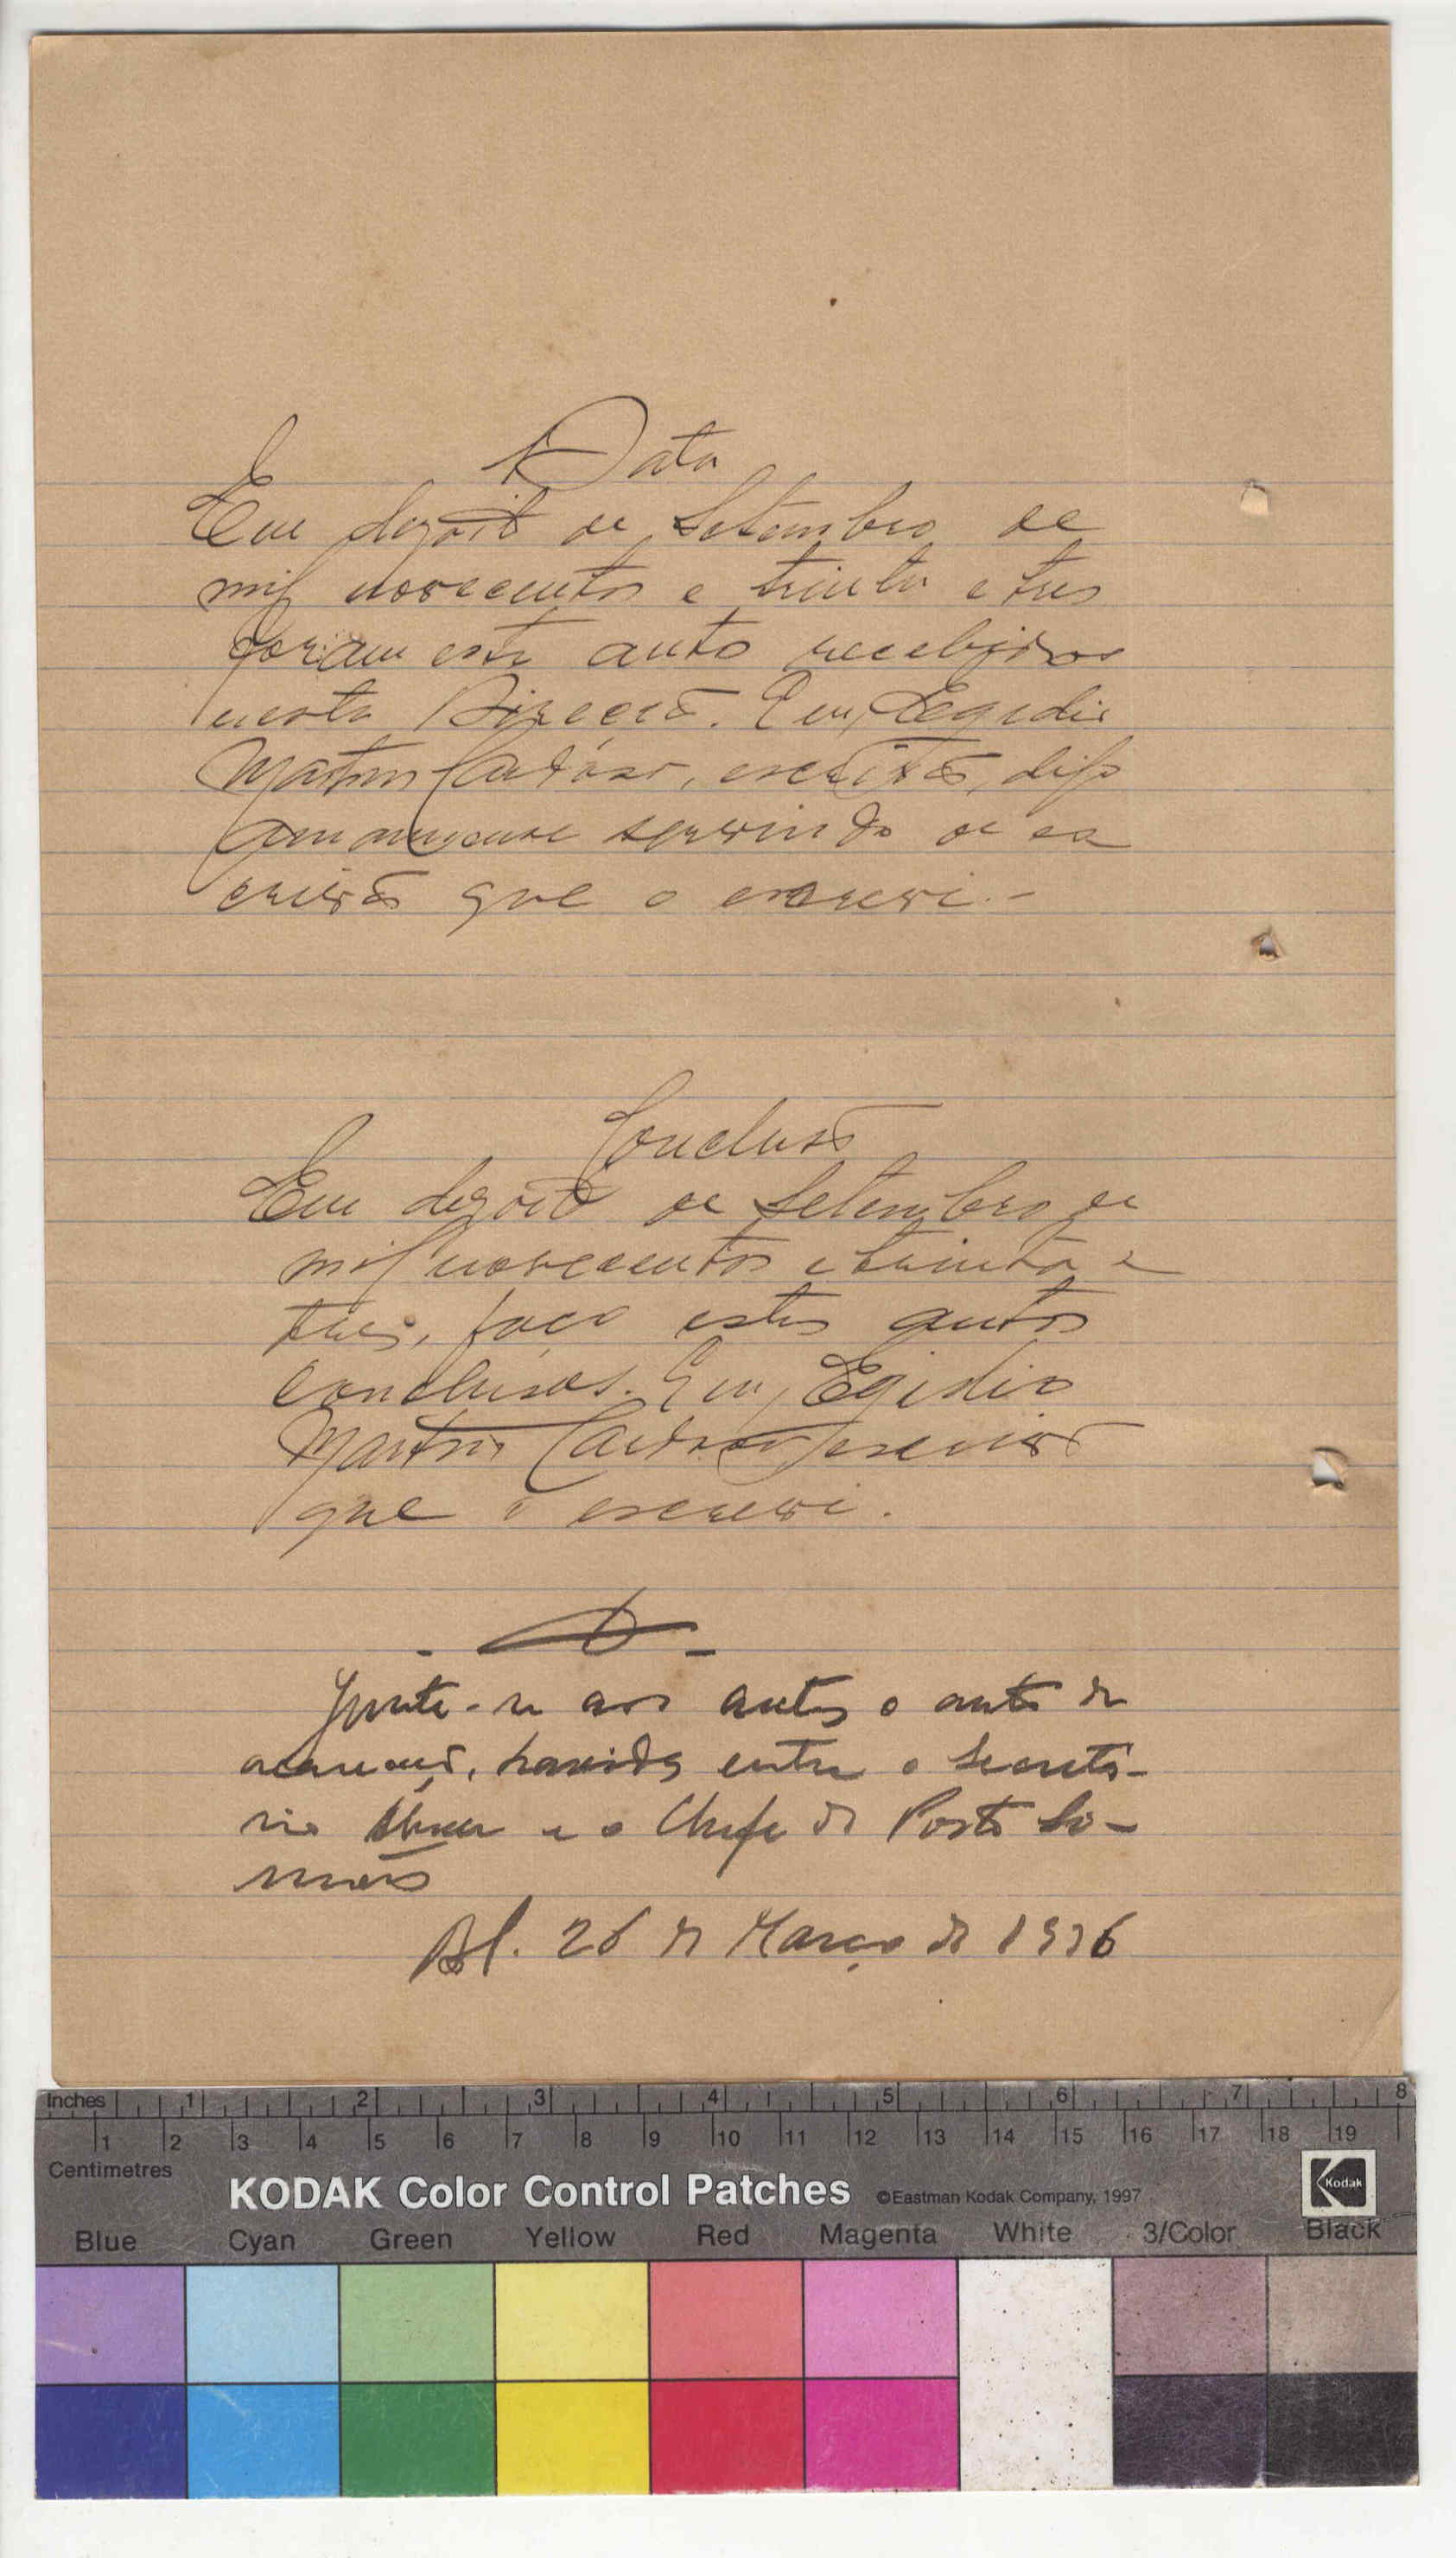 Data
Em dezoito de Setembro de
mil novecentos e trinta e tres
foram este auto recebidos
nesta Direcção. Eu, Egidio
Martins Cardoso, escrivão, digo
amanuense servindo de es
crivão que o escrevi.-
Conclusão
Em dezoito de Setembro de
mil novecentos e trinta e
tres, faço estes autos
conclusos. Eu, Egidio
Martins Cardoso escrivão
que o escrevi.
Junte-se aos autos o auto de
acareação, havida entre o Secretá-
rio e o Chefe do Posto So-
26 de Março de 1936
Inches 1 2 3 4 5 6 7 8
1 2 3 4 5 6 7 8 9 10 11 12 13 14 15 16 17 18 19
Centimetres
KODAK Color Control Patches ©Eastman Kodak Company, 1997 Kodak
Blue Cyan Green Yellow Red Magenta White 3/Color Black